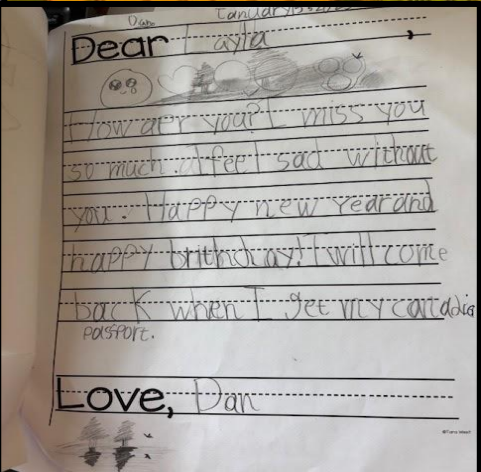 Dan
Dear Layla
How aer you? I miss you
so much. I feel sad without
you. Happy new year and
happy brithday! I will come
back when I get my canadia
passport.
Love, Dan